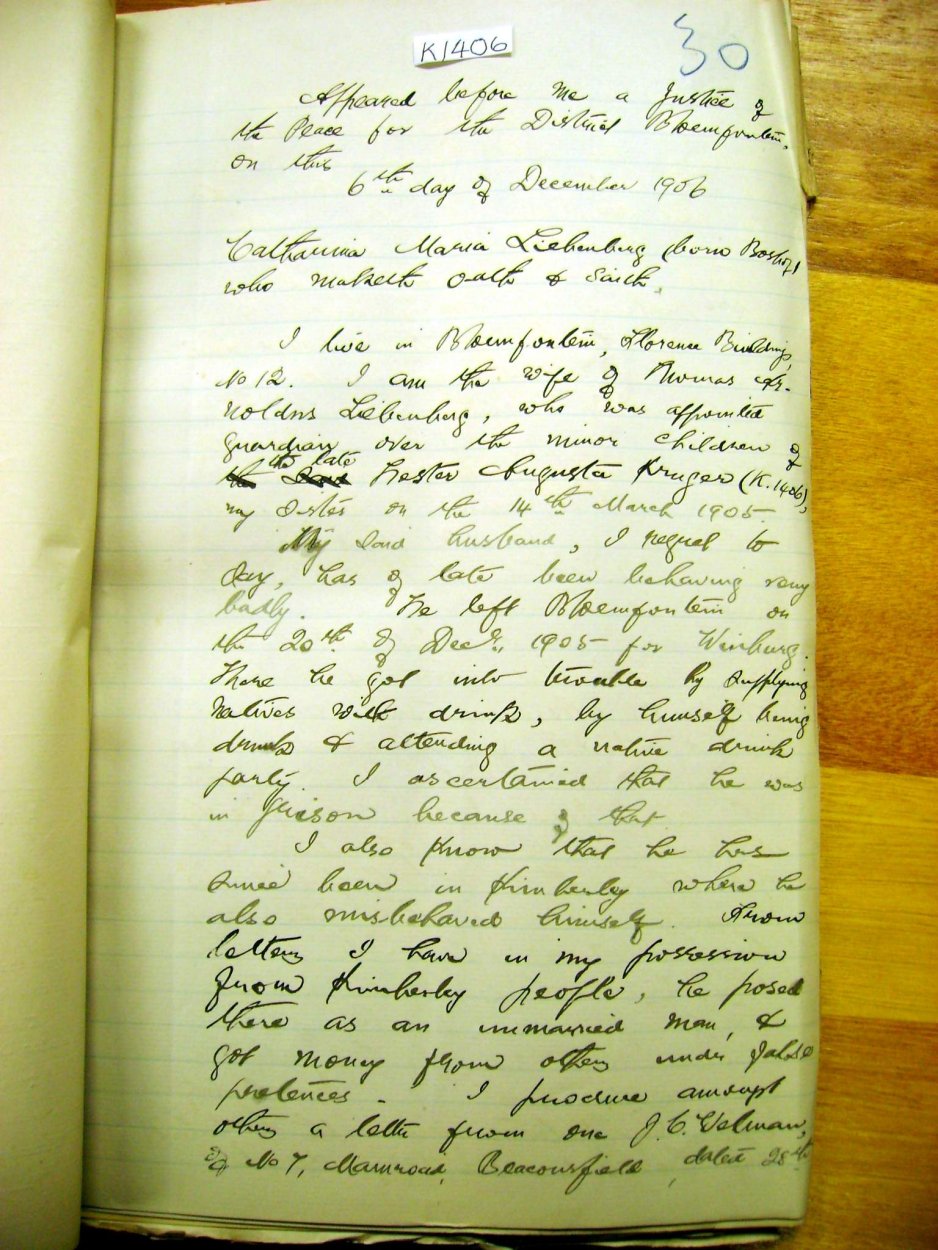 K1406
30
Appeared before me a Justice of
the Peace for the District Bloemfontein,
on this
6th day of December 1906
Catharina Maria Liebenberg (born Boshof)
who maketh oath & saith.
I live in Bloemfontein, Florence Buildings,
No 12. I am the wife of Thomas Ar-
noldus Liebenberg, who was appointed
guardian over the minor children of
the late Hester Augusta Kruger (K.1406),
my sister on the 14th March 1905.
My said husband, I regret to
say, has of late been behaving very
badly. He left Bloemfontein on
the 20th of Decr., 1905 for Winburg.
There he got into trouble by supplying
natives with drink, by himself being
drunk & attending a native drink
party. I ascertained that he was
in prison because of that.
I also know that he has
since been in Kimberley where he
also misbehaved himself. From
letters I have in my possession
from Kimberley people, he posed
there as an unmarried man, &
got money from others under false
pretences. I produce amongst
others a letter from one J.C. Welman,
of No 7, Main road, Beaconsfield, dated 28th